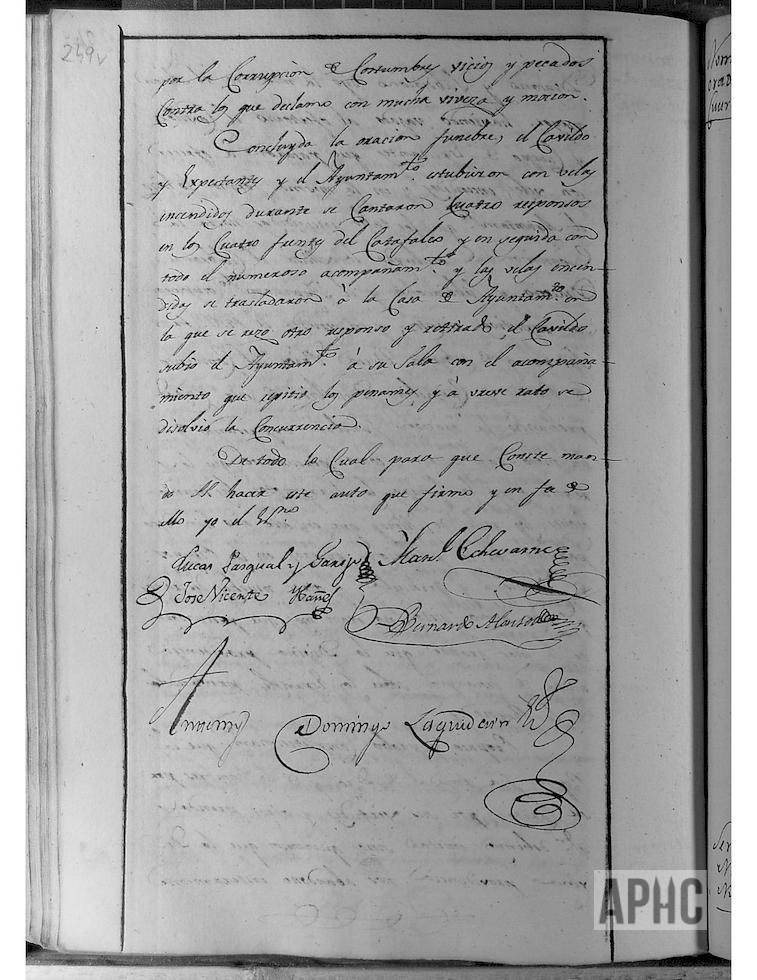 249v
por la Corrupcion de Costumbres vicios y pecados
Contra los que declamo con mucha viveza y mocion.
Concluyda la oracion funebre, el Cavildo
y Expectantes y el Ayuntam.to estubieron con velas
encendidas durante se Cantaron Cuatro responsos
en los Cuatro frentes del Catafalco y en seguida con
todo el numeroso acompañam.to y las velas encen-
didas se trasladaron à la Casa de Ayuntam.to en
la que se rezo otro responso y retirado el Cavildo
subio el Ayuntam.to à su Sala con el acompaña-
miento que repitio los pesames y à breve rato se
disolvió la Concurrencia.
De todo lo Cual para que Conste man-
do hacer este auto que firmo y en fee de
ello yo el Es.no
Lucas Pasqual y Man.l Echevarria
Jose Vicente Yañez
Bernardo Alonso
Ante my
Domingo
APHC